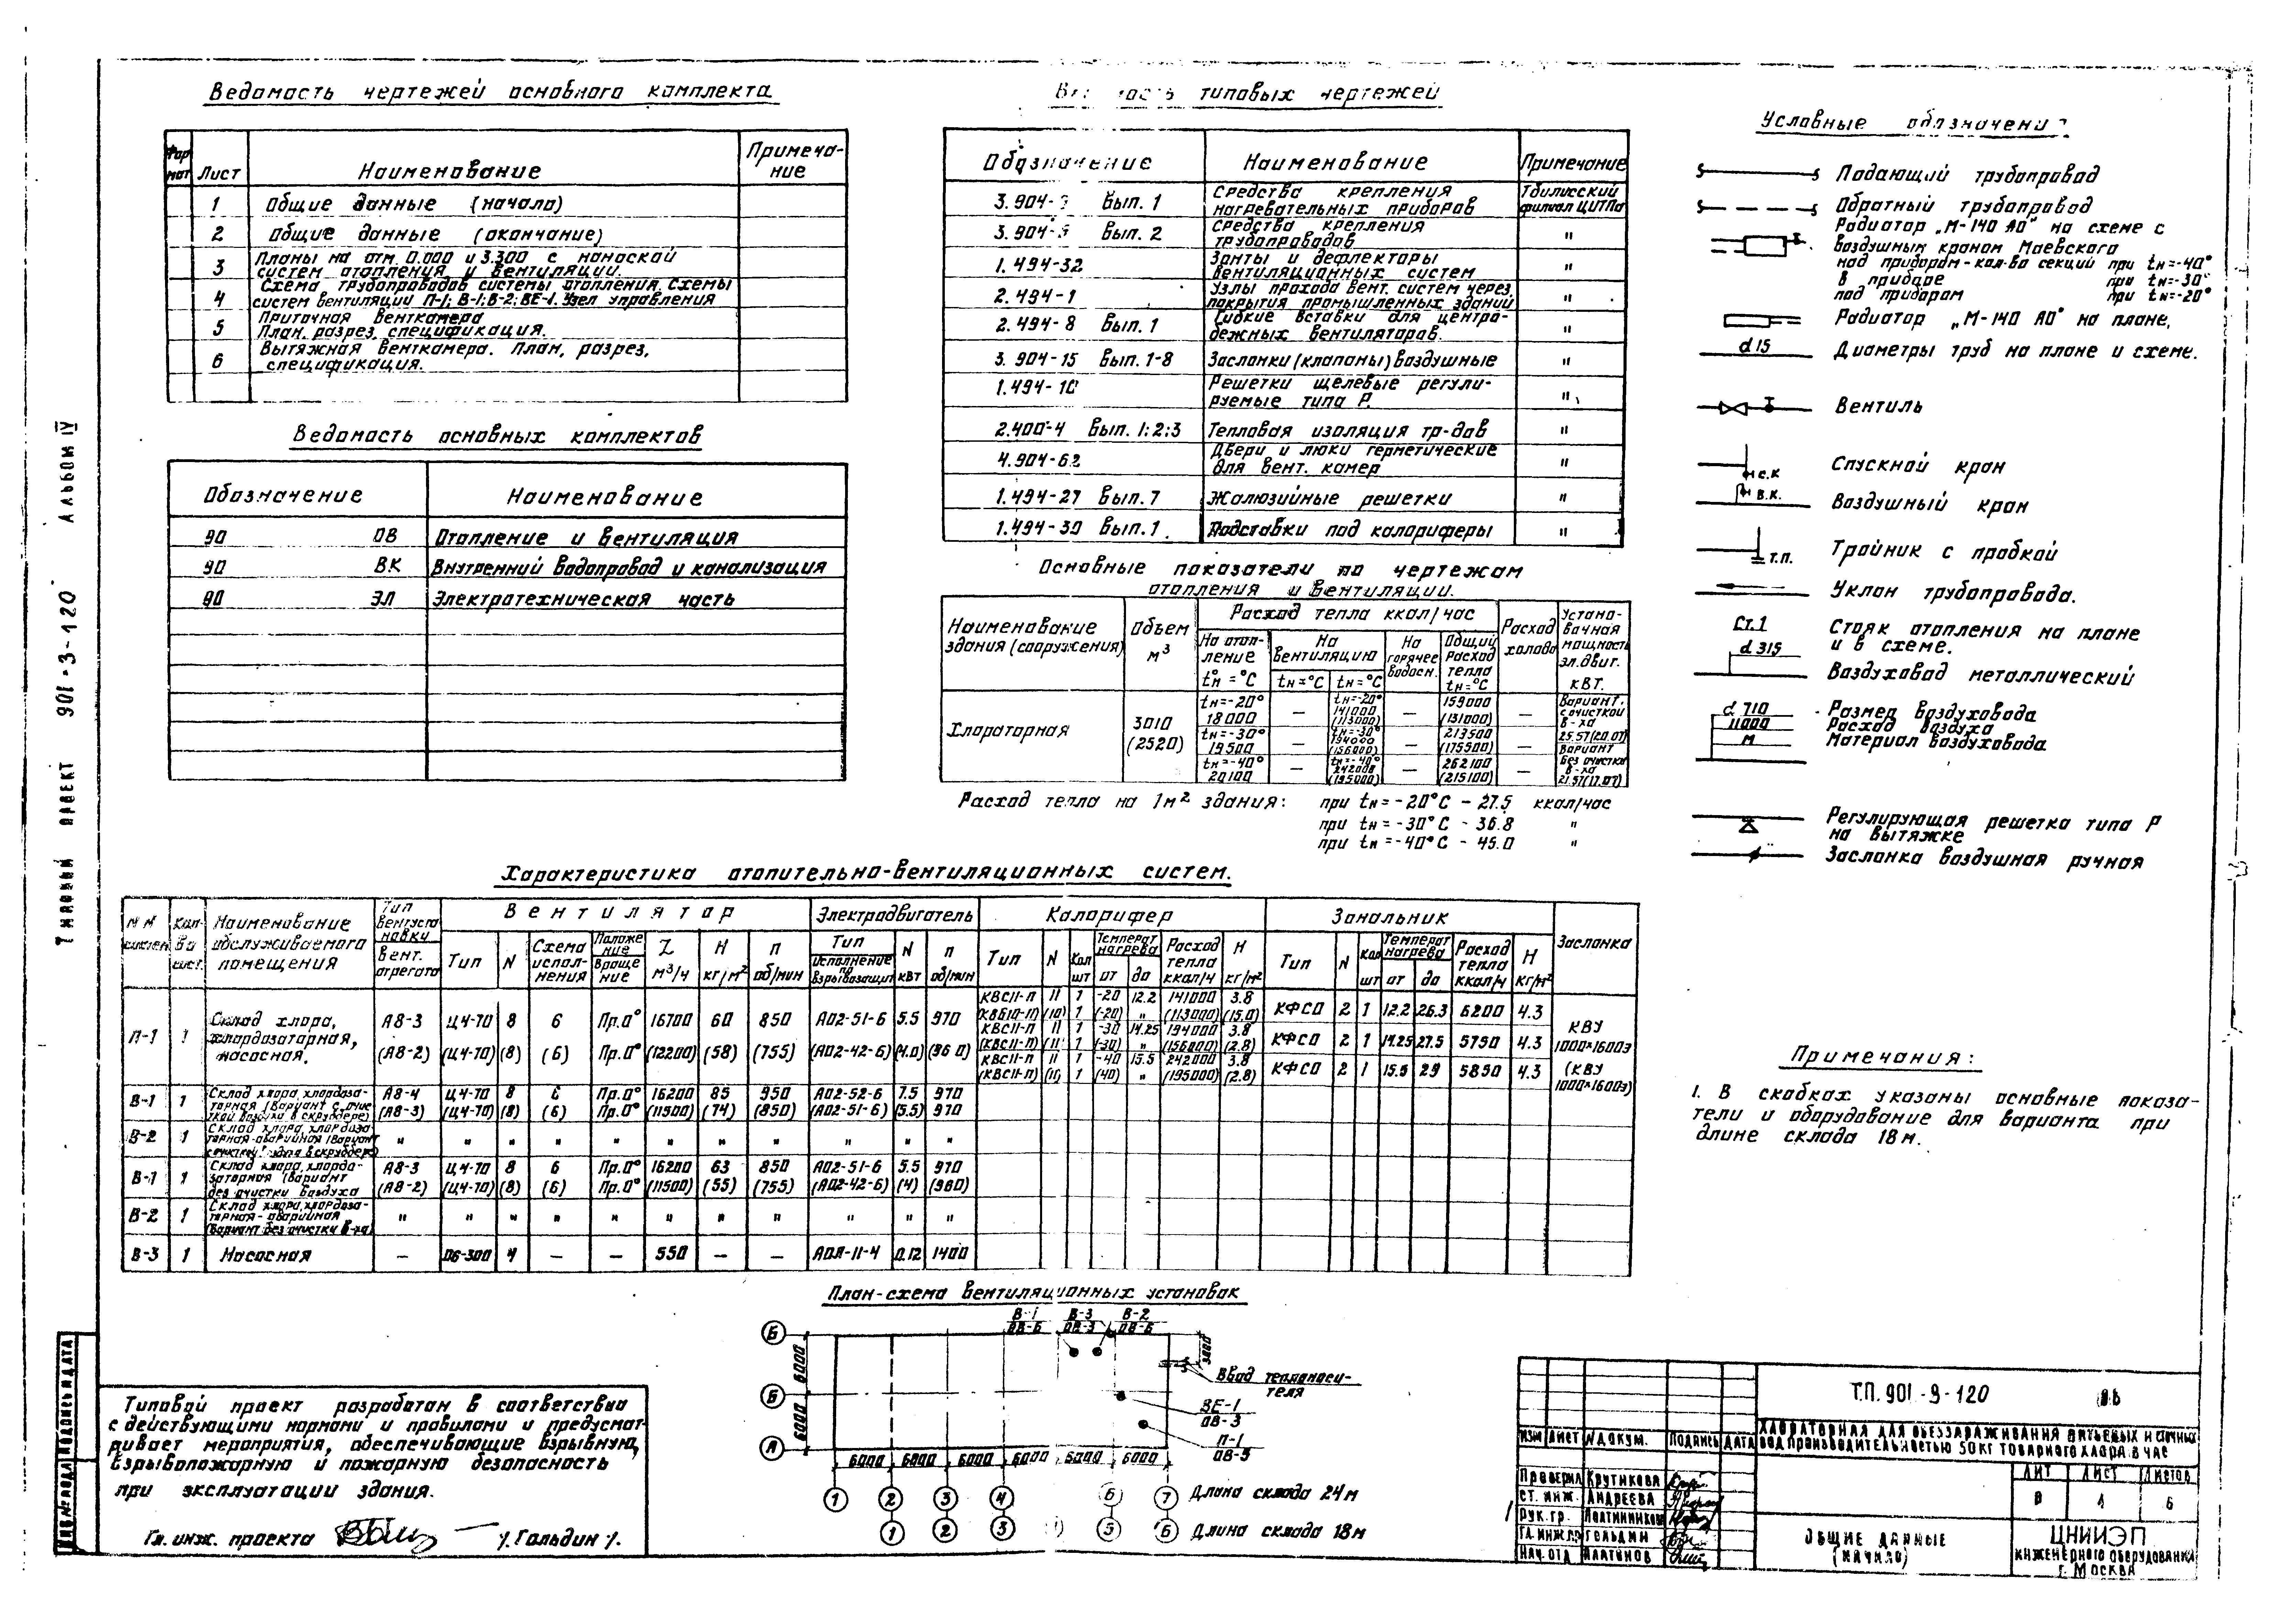 Ведомость чертежей основного комплекта
Формат Лист Наименование Примечание
1 Общие данные (начало)
2 Общие данные (окончание)
3 Планы на отм. 0.000 и 3.300 с нанаской
систем отопления и вентиляции.
4 Схема трубопроводов системы отопления. Схемы
систем вентиляции П-1; В-1; В-2; ВЕ-1. Узел управления
5 Приточная венткамера
План, разрез, спецификация.
6 Вытяжная венткамера. План, разрез,
спецификация.
Ведомость основных комплектов
Обозначение Наименование
90 ОВ Отопление и вентиляция
90 ВК Внутренний водопровод и канализация
90 ЭЛ Электротехническая часть
типовых чертежей
Обозначение Наименование Примечание
3.904- Вып. 1 Средства крепления нагревательных приборов Тбилисский филиал ЦИТПа
3.904-5 Вып. 2 Средства крепления трубопроводов "
1.494-32 Зонты и дефлекторы вентиляционных систем "
2.494-1 Узлы прохода вент. систем через покрытия промышленных зданий "
2.494-8 Вып. 1 Гибкие вставки для центробежных вентиляторов. "
3.904-15 Вып. 1-8 Заслонки (клапаны) воздушные "
1.494-10 Решетки щелевые регулируемые типа Р. "
2.400-4 Вып. 1;2;3 Тепловая изоляция тр-дов "
4.904-62 Двери и люки герметические для вент. камер "
1.494-27 Вып. 7 Жалюзийные решетки "
1.494-30 Вып. 1 Подставки под калориферы "
Основные показатели по чертежам
отопления и вентиляции.
Наименование здания (сооружения) Объем м³ Расход тепла ккал/час Расход холода Установочная мощность эл.двиг. квт.
На отопление tн = °С На вентиляцию tн=°С tн=°С На горячее водосн. Общий расход тепла tн=°С
Хлораторная 3010 (2520)
tн=-20° 18000 — tн=-20° 141000 (113000) — 159000 (131000) — Вариант с очисткой в-ха 25.57(20.07)
tн=-30° 19500 — tн=-30° 194000 (156000) — 213500 (175500) — Вариант без очистки в-ха 21.57(17.07)
tн=-40° 20100 — tн=-40° 242000 (195000) — 262100 (215100) —
Расход тепла на 1м² здания: при tн=-20°С - 27.5 ккал/час
при tн=-30°С - 36.8 "
при tн=-40°С - 45.0 "
Условные обозначени
Подающий трубопровод
Обратный трубопровод
Радиатор „М-140 АО" на схеме с
воздушным краном Маевского
над прибором - кол-во секций при tн=-40°
в приборе при tн=-30°
под прибором при tн=-20°
Радиатор „М-140 АО" на плане.
d 15 Диаметры труб на плане и схеме.
Вентиль
с.к Спускной кран
в.к. Воздушный кран
т.п. Тройник с пробкой
Уклон трубопровода.
Ст.1 Стояк отопления на плане
и в схеме.
d 315 Воздуховод металлический
d 710 Размер воздуховода
11000 Расход воздуха
М Материал воздуховода
Регулирующая решетка типа Р
на вытяжке
Заслонка воздушная ручная
Характеристика отопительно-вентиляционных систем.
N N систем Кол-во сист. Наименование обслуживаемого помещения Тип вентустановки Вент. агрегата Вентилятор Электродвигатель Калорифер Зональник Заслонка
Тип N Схема исполнения Положение Вращение L м³/ч Н кг/м² п об/мин Тип исполнение по взрывозащит N квт п об/мин Тип N Кол шт Температ нагрева от до Расход тепла ккал/ч Н кг/м² Тип N Кол шт Температ нагрева от до Расход тепла ккал/ч Н кг/м²
П-1 1 Склад хлора, хлордозаторная, насосная. А8-3 Ц4-70 8 6 Пр.0° 16700 60 850 АО2-51-6 5.5 970
(А8-2) (Ц4-70) (8) (6) Пр.0° (12200) (58) (755) (АО2-42-6) (4.0) (960)
КВС11-П 11 1 -20 12.2 141000 3.8 КФСО 2 1 12.2 26.3 6200 4.3
(КВБ10-П) (10) 1 (-20) " (113000) (15.0)
КВС11-П 11 1 -30 14.25 194000 3.8 КФСО 2 1 14.25 27.5 5790 4.3
(КВС11-П) (11) 1 (-30) " (156000) (2.8)
КВС11-П 11 1 -40 15.5 242000 3.8 КФСО 2 1 15.5 29 5850 4.3
(КВС11-П) (11) 1 (40) " (195000) (2.8)
КВУ 1000×1600э (КВУ 1000×1600э)
В-1 1 Склад хлора, хлордозаторная (вариант с очисткой воздуха в скруббере) А8-4 Ц4-70 8 6 Пр.0° 16200 85 950 АО2-52-6 7.5 970
(А8-3) (Ц4-70) (8) (6) Пр.0° (11500) (74) (850) (АО2-51-6) (5.5) 970
В-2 1 Склад хлора, хлордозаторная-аварийная (вариант с очисткой в скруббере) " " " " " " " " " " "
В-1 1 Склад хлора, хлордозаторная (вариант без очистки воздуха А8-3 Ц4-70 8 6 Пр.0° 16200 63 850 АО2-51-6 5.5 970
(А8-2) (Ц4-70) (8) (6) Пр.0° (11500) (55) (755) (АО2-42-6) (4) (960)
В-2 1 Склад хлора, хлордозаторная-аварийная (вариант без очистки в-ха) " " " " " " " " " " "
В-3 1 Насосная — 06-300 4 — — 550 — — АОЛ-11-4 0.12 1400
Примечания:
1. В скобках указаны основные показа-
тели и оборудование для варианта при
длине склада 18м.
План-схема вентиляционных установок
В-1 ОВ-6 В-3 ОВ-3 В-2 ОВ-6
Б Б А
6000 6000
3000
Ввод теплоноси-
теля
ВЕ-1 ОВ-3
П-1 ОВ-5
6000 6000 6000 6000 6000 6000
1 2 3 4 6 7 Длина склада 24м
1 2 3 5 6 Длина склада 18м
Типовой проект разработан в соответствии
с действующими нормами и правилами и предусмат-
ривает мероприятия, обеспечивающие взрывную,
взрывопожарную и пожарную безопасность
при эксплуатации здания.
Гл. инж. проекта /Гольдин/.
Типовой проект 901-3-120 Альбом IV
Инв.№ подл Подпись и дата
Т.П. 901-9-120 ОВ
Хлораторная для обеззараживания питьевых и сточных
вод производительностью 50 кг товарного хлора в час
Изм Лист N докум. Подпись Дата
Проверил Крутикова
Ст. инж. Андреева
Рук. гр.
Гл. инж. пр Гольдин
Нач. отд Платонов
Лит Лист Листов
1 6
Общие данные
(начало)
ЦНИИЭП
инженерного оборудования
г. Москва